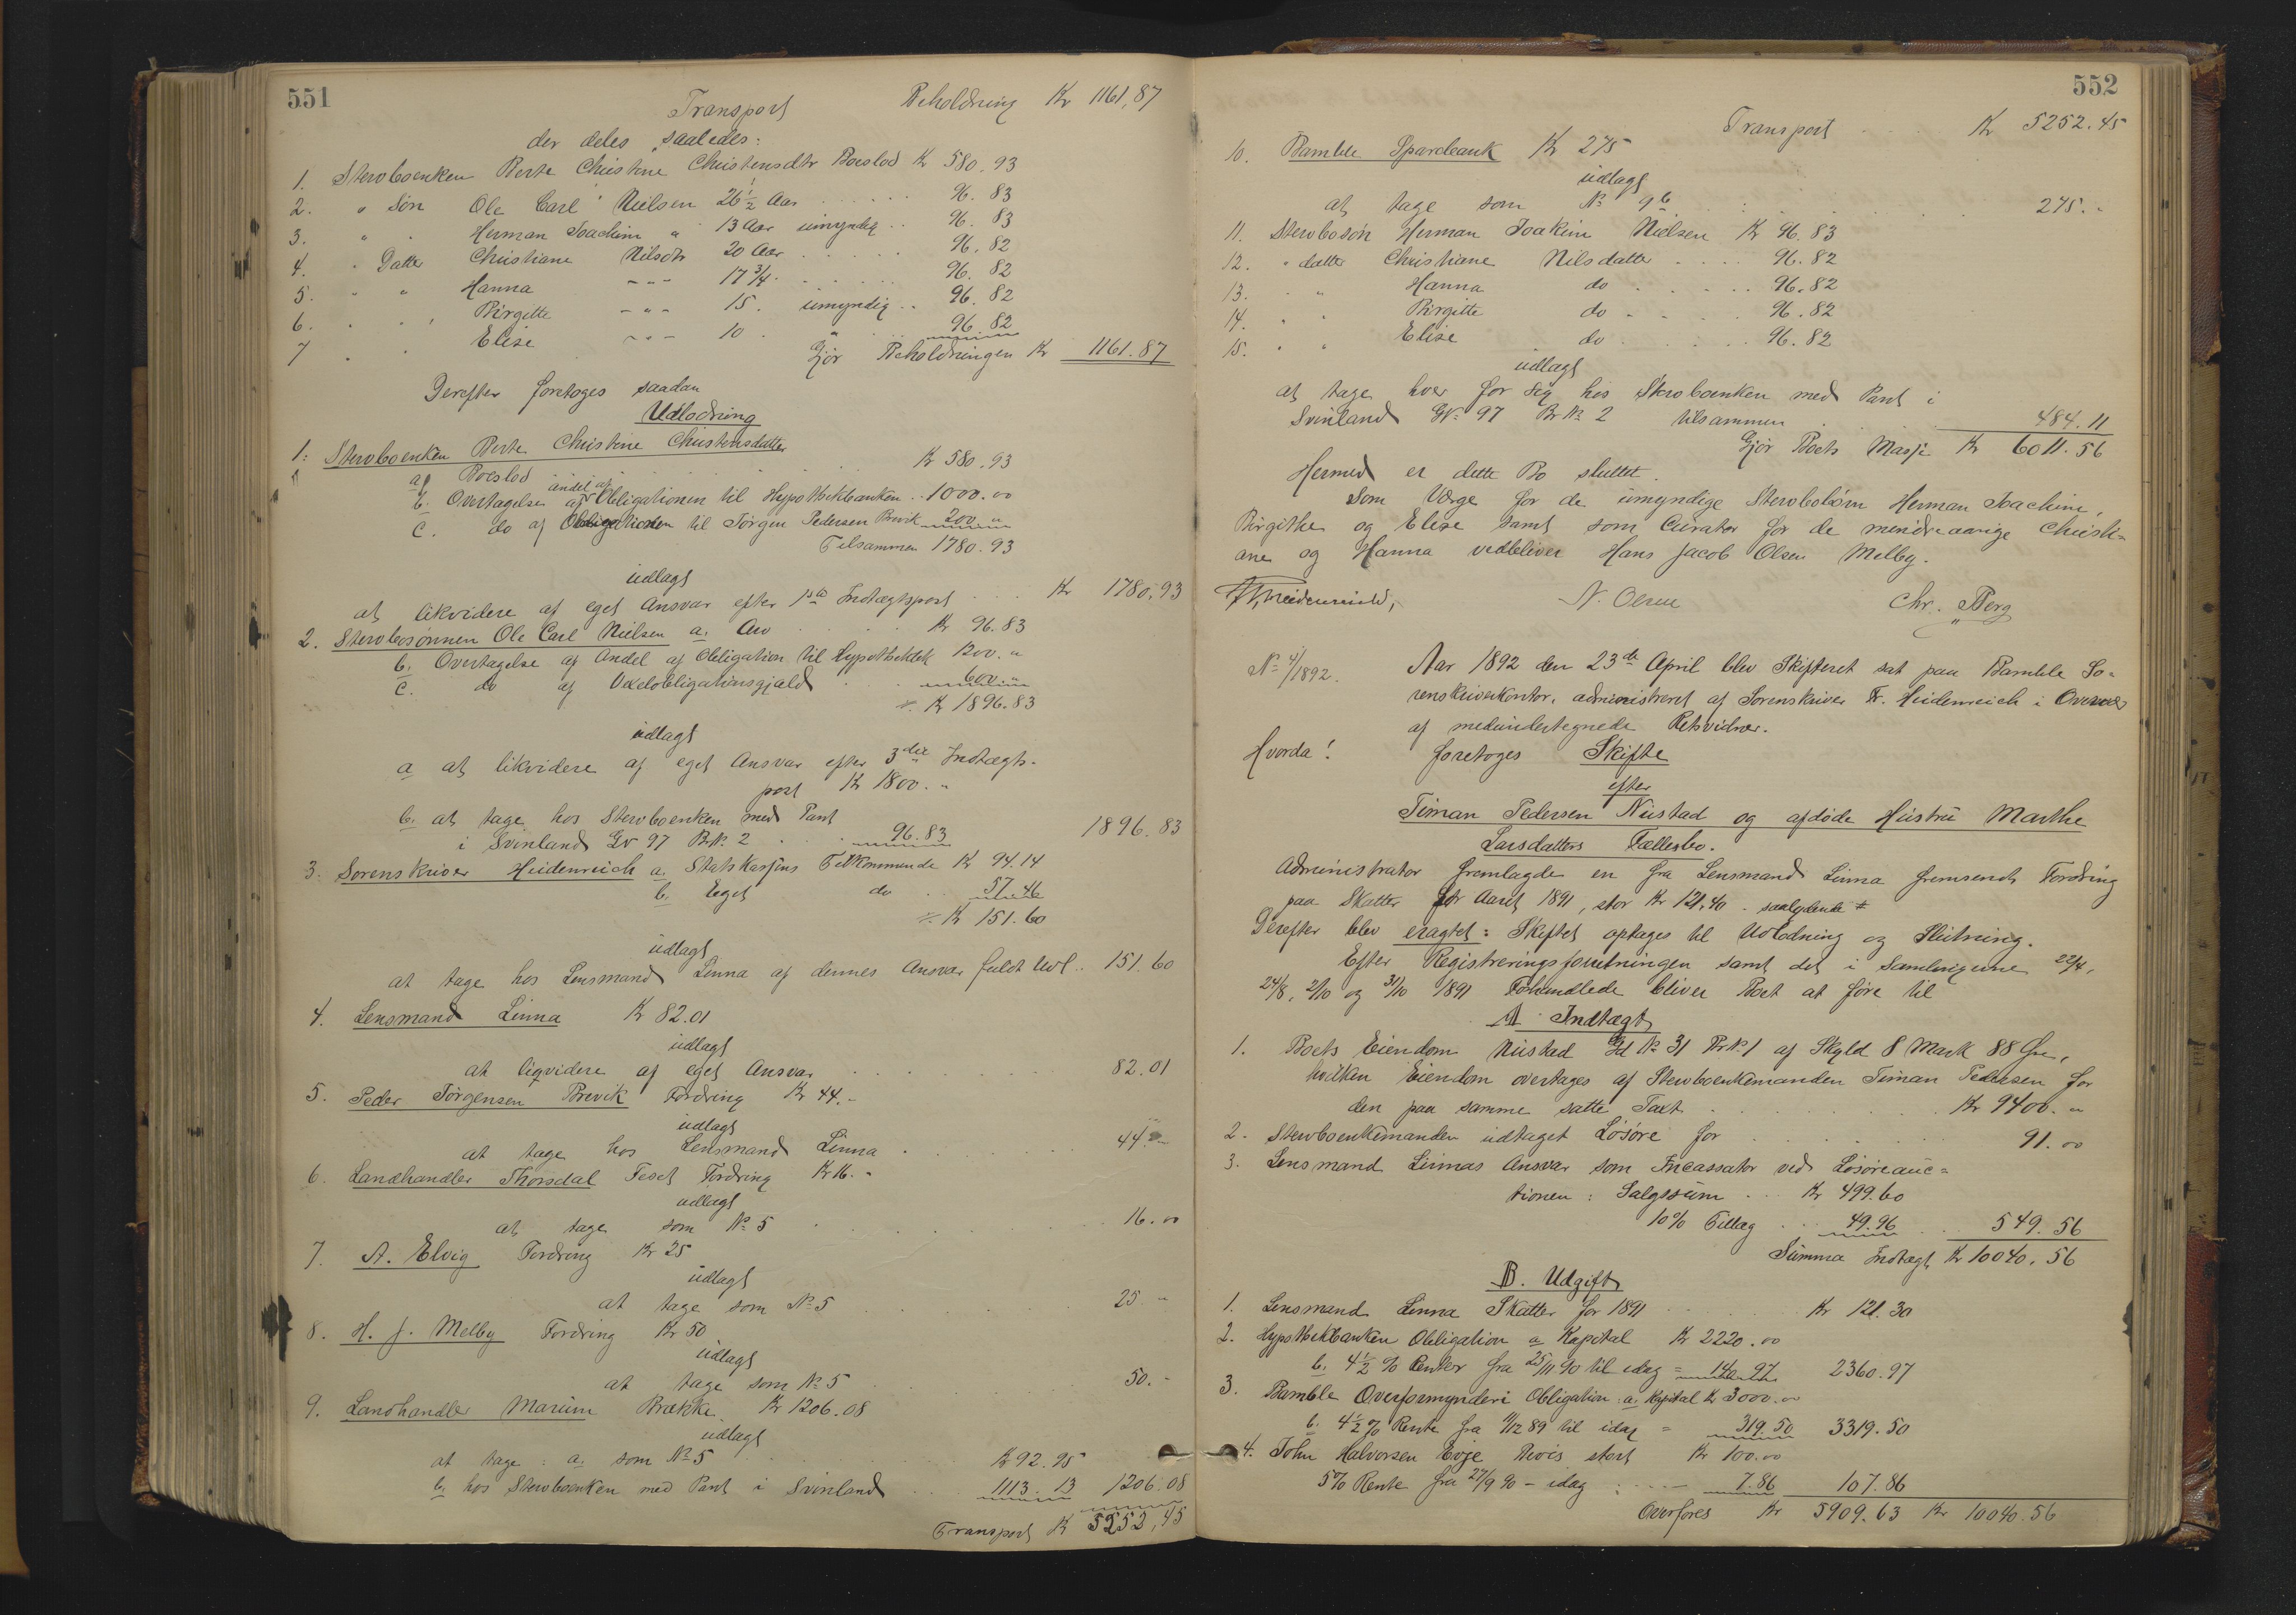 551
Transport Beholdning Kr 1161,87
der deles saaledes:
1. Stervboenken Berte Christine Christensdtr Boeslod Kr 580.93
2. " Søn Ole Carl Nielsen 26 1/2 Aar ..... 96.83
3. " " Herman Joachim " 13 Aar umyndig .. 96.83
4. " Datter Christiane Nilsdtr 20 Aar ..... 96.82
5. " " Hanna - " - 17 3/4 ..... 96.82
6. " " Birgitte - " - 15. umyndig .. 96.82
7 " " Elise - " - 10 . " ... 96.82
Gjør Beholdningen Kr 1161.87
Derefter foretoges saadan
Udlodning
1: Stervboenken Berte Christine Christensdatter
a Boeslod ..... Kr 580.93
b. Overtagelsen af andel af Obligationen til Hypothekbanken .. 1000.00
c. do af Obligationen til Jørgen Pedersen Brevik 200 "
Tilsammen 1780.93
udlagt
at likvidere af eget Ansvar efter 1ste Indtægtspost ... Kr 1780.93
2. Stervbosønnen Ole Carl Nielsen a. Arv ... Kr 96.83
b. Overtagelse af Andel af Obligation til Hypothekbk 1200. "
c. do af Vexelobligationsgjæld .. 600. "
Kr 1896.83
udlagt
a at likvidere af eget Ansvar efter 3die Indtægts-
post Kr 1800. "
b. at tage hos Stervboenken med Pant
i Svinland Gr 97 B.№ 2 .. 96.83 1896.83
3. Sorenskriver Heidenreich a. Statskassens Tilkommende Kr 94.14
b. Eget do .. 57.46
Kr 151.60
udlagt
at tage hos Lensmand Linna af dennes Ansvar fuldt Udl .. 151.60
4. Lensmand Linna Kr 82.01
udlagt
at liqvidere af eget Ansvar ..... 82.01
5. Peder Jørgensen Brevik Fordring Kr 44.-
udlagt
at tage hos Lensmand Linna ..... 44.-
6. Landhandler Thorsdal Fordring Kr 16.-
udlagt
at tage som № 5 ..... 16.00
7. A. Elvig Fordring Kr 25
udlagt
at tage som № 5 ..... 25 "
8. H. J. Melby Fordring Kr 50
udlagt
at tage som № 5 ..... 50.-
9. Landhandler Brække Kr 1206.08
udlagt
at tage : a. som № 5 ..... Kr 92.95
b. hos Stervboenken med Pant i Svinland .. 1113.13 1206.08
Transport Kr 5252,45
552
Transport .... Kr 5252.45
10. Bamble Sparebank Kr 275
udlagt
at tage som № 9b ..... 275. "
11. Stervbosøn Herman Joakim Nielsen Kr 96.83
12. " datter Christiane Nilsdatter .... 96.82
13. " " Hanna do ..... 96.82
14. " " Birgitte do .... 96.82
15. " " Elise do ..... 96.82
udlagt
at tage hver for sig hos Stervboenken med Pant i
Svinland G№ 97 Br№ 2 tilsammen .. 484.11
Gjør Boets Masse Kr 6011.56
Hermed er dette Bo sluttet.
Som Værge for de umyndige Stervbobørn Herman Joachim,
Birgithe og Elise samt som Curator for de mindreaarige Christi=
ane og Hanna vedbliver Hans Jacob Olsen Melby.
Heidenreich, N. Olsen Chr. Berg
№ 4/1892. Aar 1892 den 23de April blev Skifteret sat paa Bamble So=
renskriverkontor, administreret af Sorenskriver Fr. Heidenreich i Overvær
af medundertegnede Retsvidner.
Hvorda! foretoges Skifte
efter
Timan Pedersen Nustad og afdøde Hustru Marthe
Larsdatters Fællesbo.
Administrator fremlagde en fra Lensmand Linna fremsendt Fordring
paa Skatter for Aaret 1891, stor Kr 121,40 . saalydende #
Derefter blev eragtet: Skiftet optages til Udlodning og Slutning.
Efter Registreringsforretningen samt det i Samlingerne 22/4,
24/8, 2/10 og 31/10 1891 Forhandlede bliver Boet at føre til
A Indtægt
1. Boets Eiendom Nustad Gd № 31 Br№ 1 af Skyld 8 Mark 88 Øre,
hvilken Eiendom overtages af Stervboenkemanden Timan Pedersen for
den paa samme satte Taxt ..... Kr 9400. "
2. Stervboenkemanden udtaget Løsøre for ..... 91.00
3. Lensmand Linnas Ansvar som Incassator ved Løsøreauc=
tionen : Salgssum ... Kr 499.60
10% Tillæg ... 49.96 .. 549.56
Summa Indtægt Kr 10040.56
B. Udgift
1. Lensmand Linna Skatter for 1891 .... Kr 121.30
2. Hypothekbanken Obligation a Kapital Kr 2220.00
b. 4 1/2 % Renter fra 25/11 90 til idag = 140.97 2360.97
3. Bamble Overformynderi Obligation: a. Kapital Kr 3000.00
b. 4 1/2 % Rente fra 11/12 89 til idag = 319.50 3319.50
4. John Halvorsen Evje stort Kr 100.00
5% Rente fra 27/9 90 - idag : - - 7.86 107.86
Overføres Kr 5909.63 Kr 10040.56